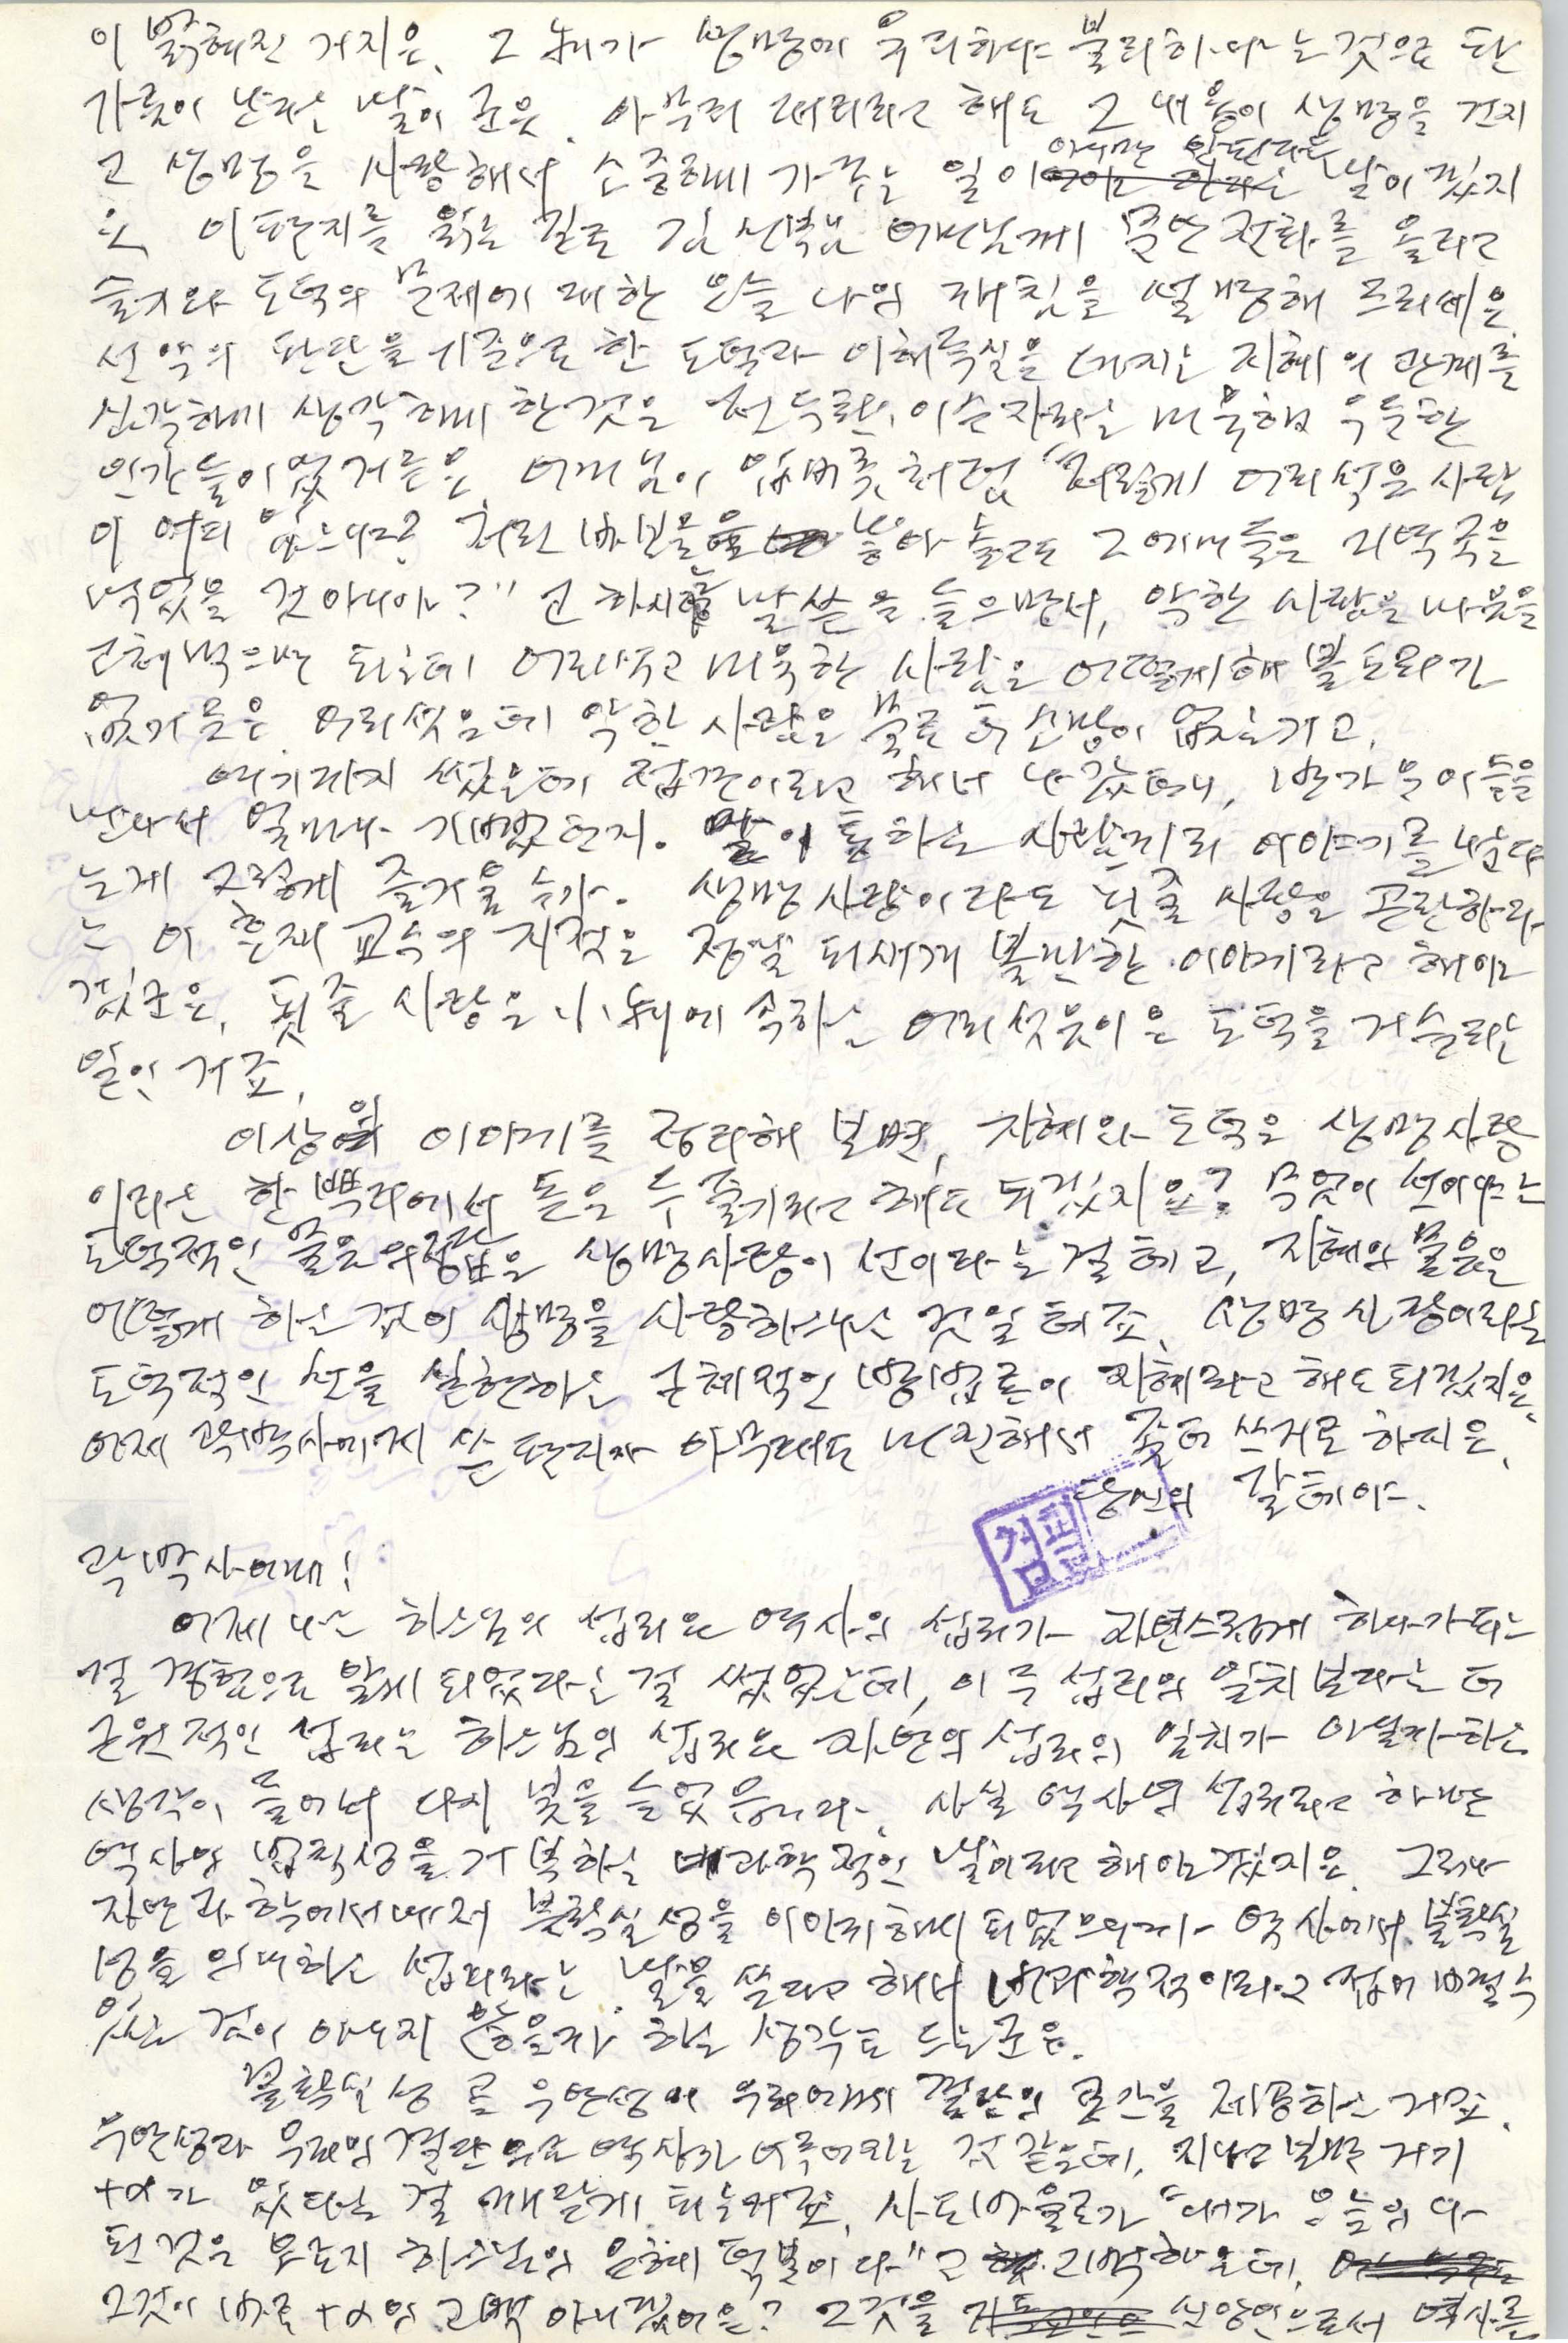 이 밝혀진 거지요. 그 知가 생명에 유리하냐 불리하냐는 것으로 판
가름이 난다는 말이군요. 아무리 대지라고 해도 그 내용이 생명을 건지
고 생명을 사랑해서 소중하게 가꾸는 일이 아니면 안된다는 말이겠지
요. 이 편지를 읽는 길로 김신묵 어머님께 문안 전화를 올리고
슬기와 도덕의 문제에 대한 오늘 나의 깨침을 설명해 드리세요.
선악의 판단을 기준으로 한 도덕과 이해득실을 따지는 지혜의 관계를
심각하게 생각하게 한 것은 전두환, 이순자라는 미욱하고 우둔한
인간들이었거든요. 어머님이 입버릇처럼 "저렇게 어리석은 사람
이 어디 있느냐? 저런 바보들을 낳아 놓고도 그 에미들은 미역국을
먹었을 것 아니야?"고 하시는 말씀을 들으면서, 악한 사람은 마음을
고쳐먹으면 되는데 어리석고 미욱한 사람은 어떻게 해 볼 도리가
없거든요. 어리석은데 악한 사람은 더 말로 할 것이 없는거고.
여기까지 썼는데 접견이라고 해서 나갔더니, 반가운 이들을
만나서 얼마나 기뻤던지. 말이 통하는 사람끼리 이야기를 나눈다
는게 그렇게 즐거울 수가. 생명 사랑이라도 핏줄 사랑은 곤란하다
는 이 교수의 지적은 정말 되새겨 볼만한 이야기라고 해야
겠군요. 핏줄 사랑은 小知에 속하는 어리석음이요 도덕을 거슬리는
일인 거죠.
이상의 이야기를 정리해 보면, 지혜와 도덕은 생명 사랑
이라는 한 뿌리에서 돋은 두 줄기라고 해도 되겠지요? 무엇이 선이냐는
도덕적인 물음의 정답은 생명사랑이 선이라는 걸 테고, 지혜의 물음은
어떻게 하는 것이 생명을 사랑하느냐는 것일 테죠. 생명 사랑이라는
도덕적인 선을 실현하는 구체적인 방법론이 지혜라고 해도 되겠지요.
어제 곽박사에게 쓴 편지가 아무래도 미진해서 좀 더 쓰기로 하지요.
당신의 갈테야.
검열
곽박사에게!
어제 나는 하느님의 섭리와 역사의 섭리가 자연스럽게 하나가 되는
걸 경험으로 알게 되었다는 걸 썼었는데, 이 두 섭리의 일치보다는 더
근원적인 섭리는 하느님의 섭리와 자연의 섭리의 일치가 아닐까 하는
생각이 들어서 다시 붓을 들었습니다. 사실 역사의 섭리라고 하면
역사의 법칙성을 거부하는 비과학적인 말이라고 해야겠지요. 그러나
자연과학에서마저 불확실성을 이야기하게 되었으니까 역사에서 불확실
성을 의미하는 섭리라는 말을 쓴다고 해서 비과학적이라고 접어 버릴 수
있는 것이 아니지 않을까 하는 생각도 드는군요.
불확실성 곧 우연성이 우리에게 결단의 공간을 제공하는 거죠.
우연성과 우리의 결단으로 역사가 이루어지는 것 같은데, 지나고 보면 거기
+α가 있다는 걸 깨닫게 되는거죠. 사도 바울로가 "내가 오늘의 나
된 것은 오로지 하느님의 은혜 덕분이다"고 고백하는데,
그것이 바로 +α의 고백 아니겠어요? 그것을 신앙인으로서 역사를